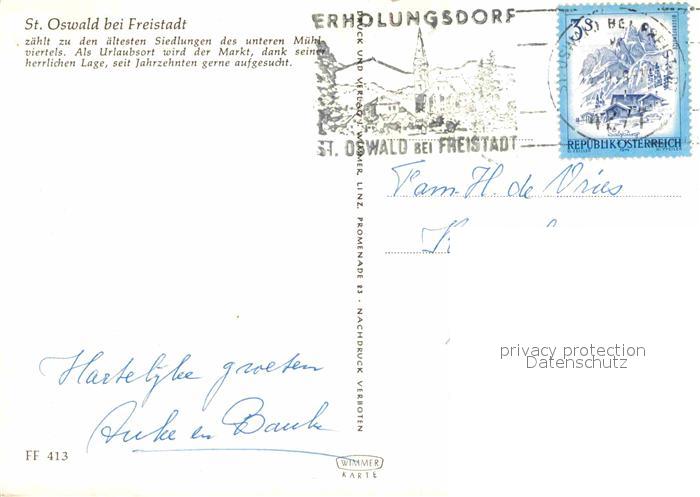 St. Oswald bei Freistadt
zählt zu den ältesten Siedlungen des unteren Mühl-
viertels. Als Urlaubsort wird der Markt, dank seiner
herrlichen Lage, seit Jahrzehnten gerne aufgesucht.
ERHOLUNGSDORF
ST. OSWALD BEI FREISTADT
3S
REPUBLIK ÖSTERREICH
DRUCK UND VERLAG J. WIMMER, LINZ, PROMENADE 23 - NACHDRUCK VERBOTEN
Fam. H. de Vries
privacy protection
Datenschutz
Hartelijke groeten
Anke en Bauke
FF 413
WIMMER
KARTE